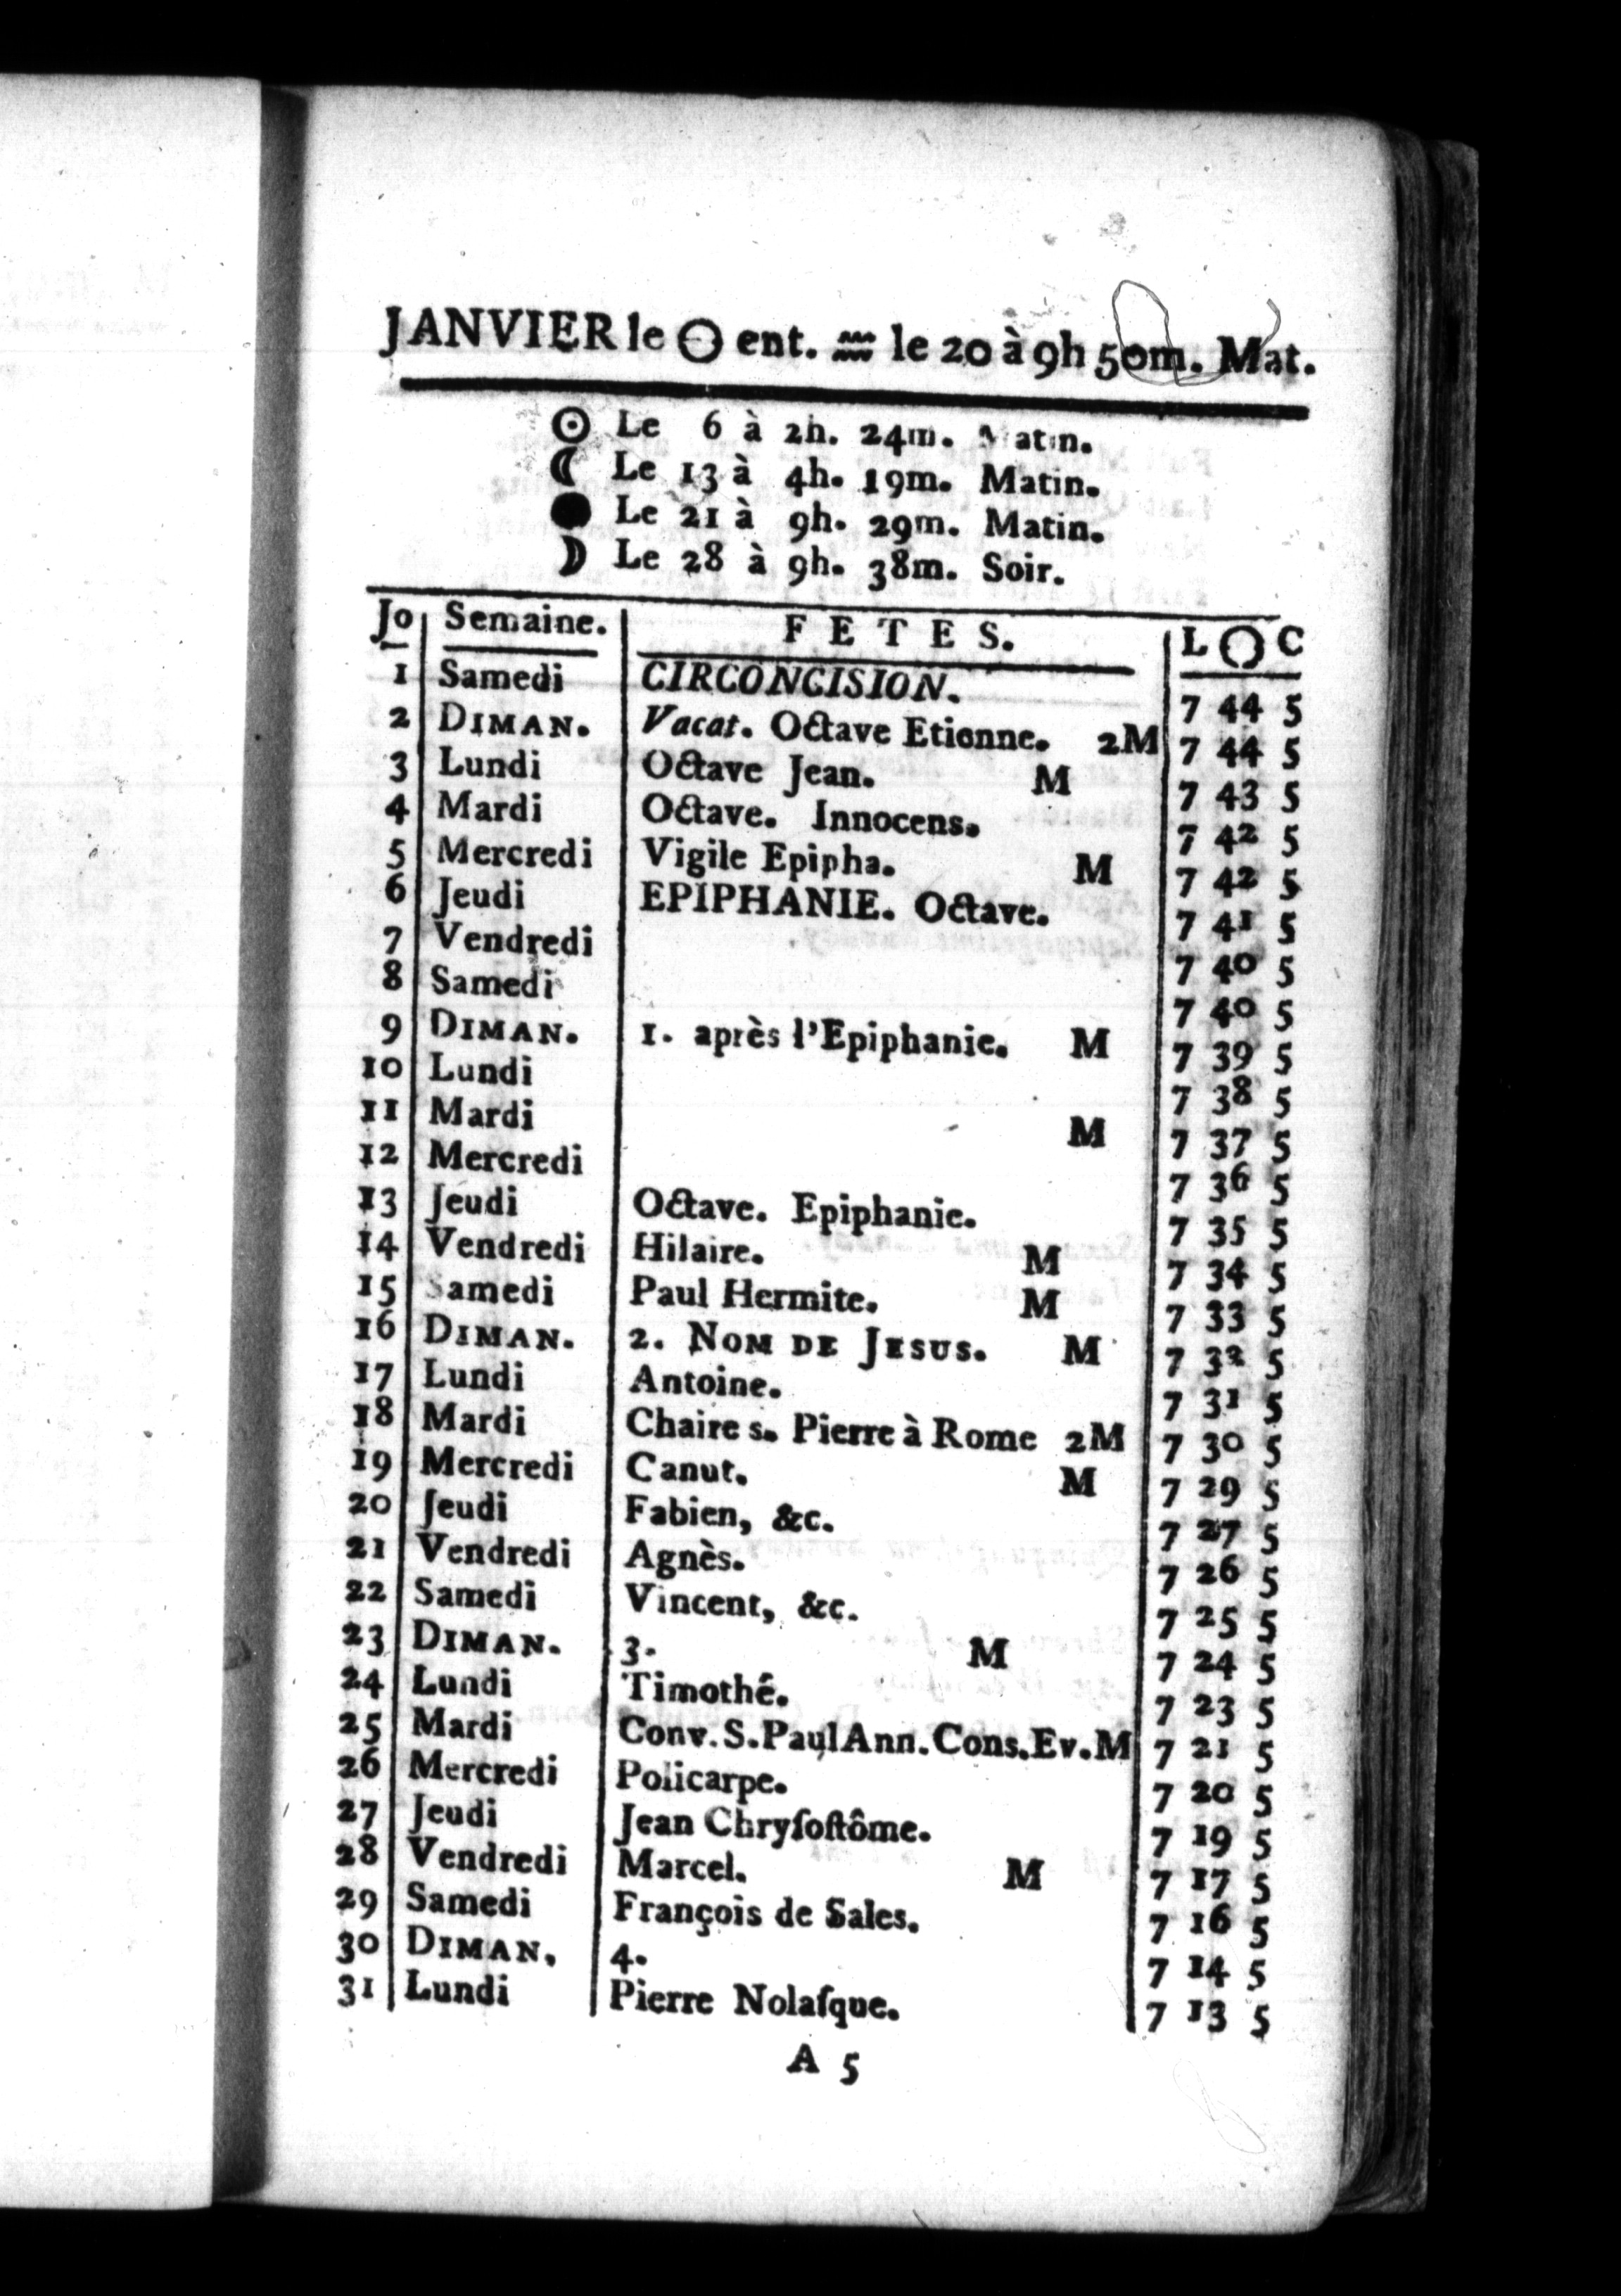 JANVIER le ◯ ent. ♒ le 20 à 9h 50m. Mat.
☉ Le 6 à 2h. 24m. Matin.
☾ Le 13 à 4h. 19m. Matin.
● Le 21 à 9h. 29m. Matin.
☽ Le 28 à 9h. 38m. Soir.
Jo Semaine. FETES. L ◯ C
1 Samedi CIRCONCISION. 7 44 5
2 DIMAN. Vacat. Octave Etienne. 2M 7 44 5
3 Lundi Octave Jean. M 7 43 5
4 Mardi Octave. Innocens. 7 42 5
5 Mercredi Vigile Epipha. M 7 42 5
6 Jeudi EPIPHANIE. Octave. 7 41 5
7 Vendredi 7 40 5
8 Samedi 7 40 5
9 DIMAN. 1. après l'Epiphanie. M 7 39 5
10 Lundi 7 38 5
11 Mardi M 7 37 5
12 Mercredi 7 36 5
13 Jeudi Octave. Epiphanie. 7 35 5
14 Vendredi Hilaire. M 7 34 5
15 Samedi Paul Hermite. M 7 33 5
16 DIMAN. 2. NOM DE JESUS. M 7 32 5
17 Lundi Antoine. 7 31 5
18 Mardi Chaire s. Pierre à Rome 2M 7 30 5
19 Mercredi Canut. M 7 29 5
20 Jeudi Fabien, &c. 7 27 5
21 Vendredi Agnès. 7 26 5
22 Samedi Vincent, &c. 7 25 5
23 DIMAN. 3. M 7 24 5
24 Lundi Timothé. 7 23 5
25 Mardi Conv. S. Paul Ann. Cons. Ev. M 7 21 5
26 Mercredi Policarpe. 7 20 5
27 Jeudi Jean Chryſoſtôme. 7 19 5
28 Vendredi Marcel. M 7 17 5
29 Samedi François de Sales. 7 16 5
30 DIMAN, 4. 7 14 5
31 Lundi Pierre Nolaſque. 7 13 5
A 5